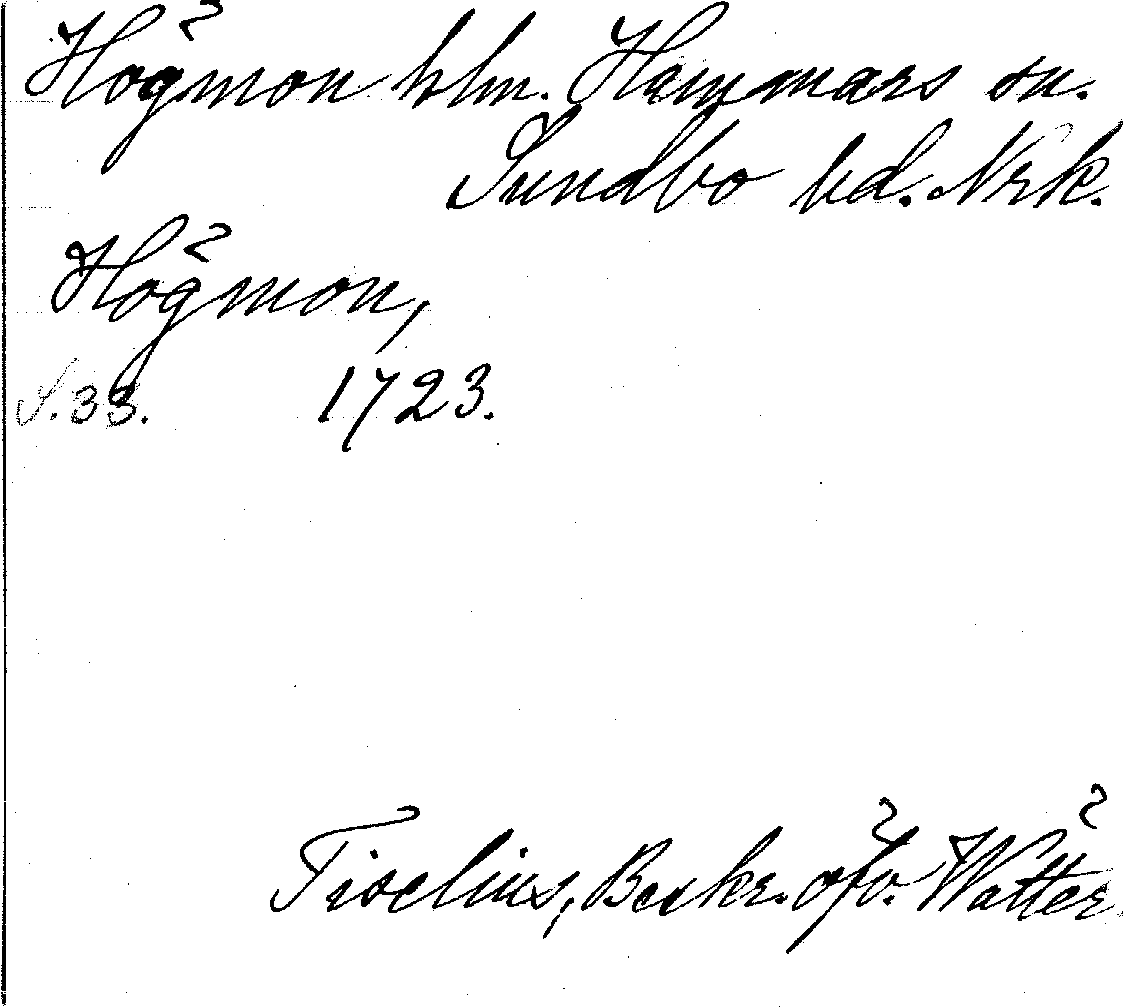 Högmon hlm. Hammars sn.
Sundbo hd. Nrk.
Högmon,
S. 33. 1723.
Tiselius, Beskr. öfv. Wätter.